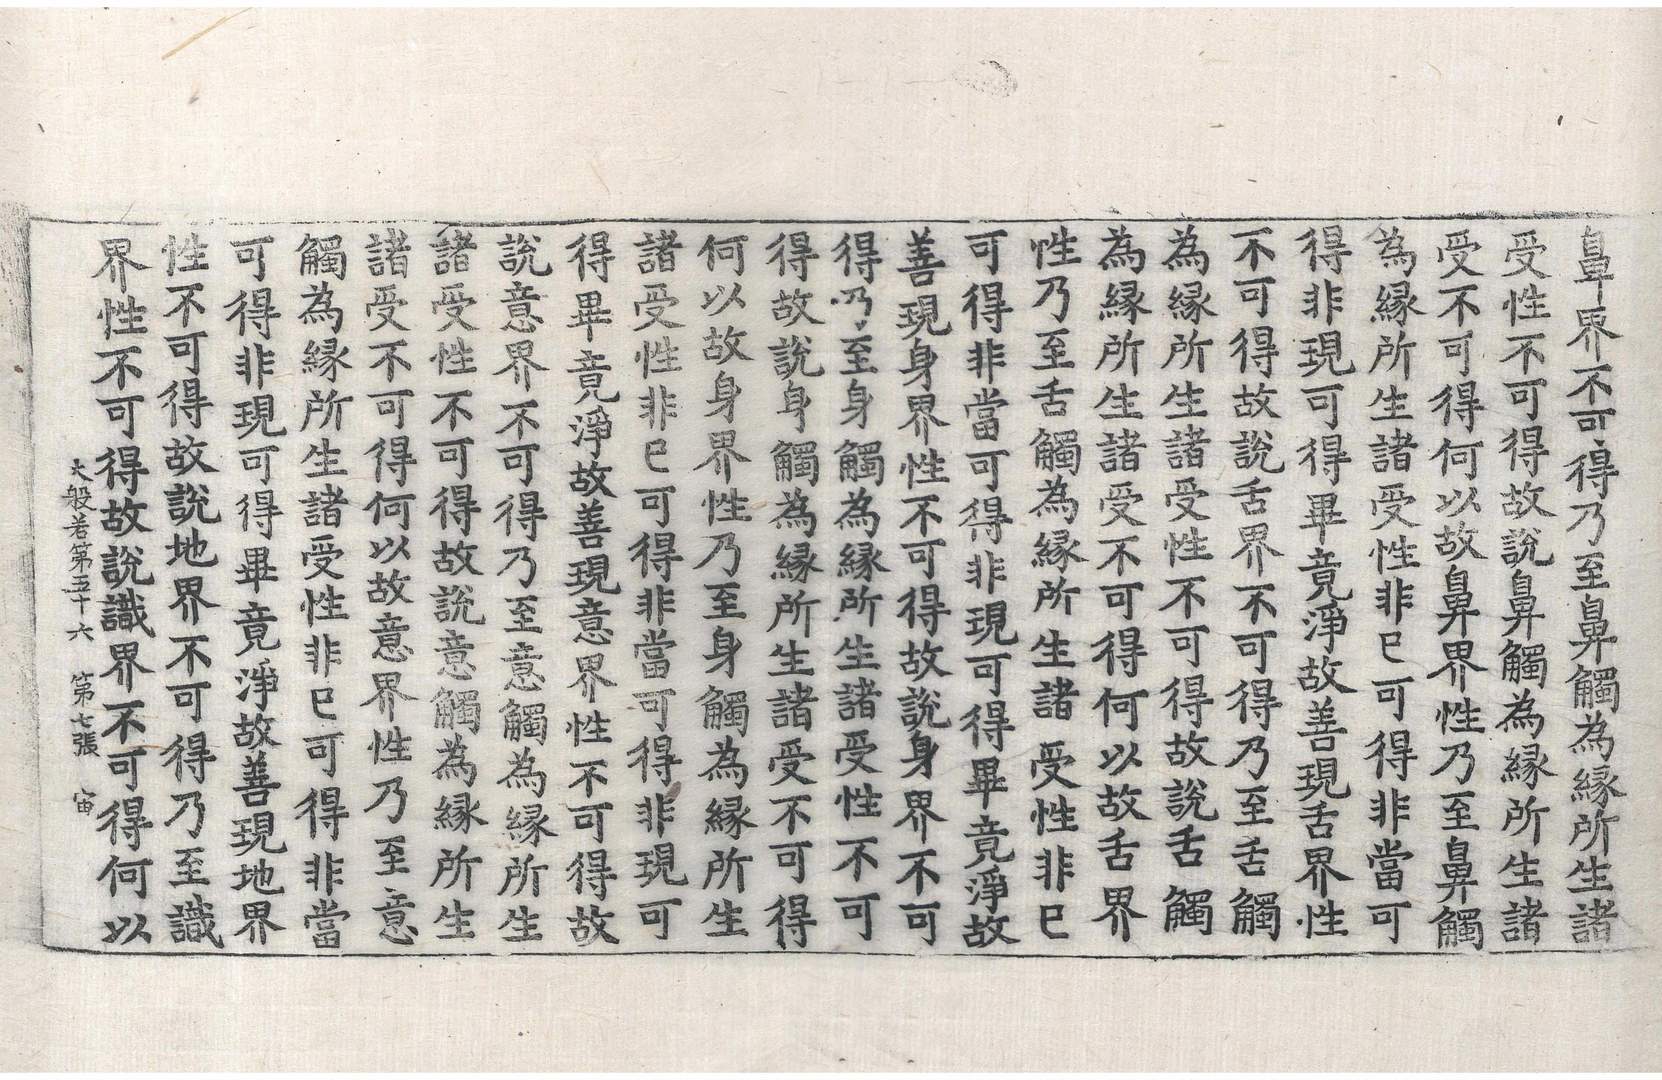 鼻界不可得乃至鼻觸為緣所生諸
受性不可得故說鼻觸為緣所生諸
受不可得何以故鼻界性乃至鼻觸
為緣所生諸受性非已可得非當可
得非現可得畢竟淨故善現舌界性
不可得故說舌界不可得乃至舌觸
為緣所生諸受性不可得故說舌觸
為緣所生諸受不可得何以故舌界
性乃至舌觸為緣所生諸受性非已
可得非當可得非現可得畢竟淨故
善現身界性不可得故說身界不可
得乃至身觸為緣所生諸受性不可
得故說身觸為緣所生諸受不可得
何以故身界性乃至身觸為緣所生
諸受性非已可得非當可得非現可
得畢竟淨故善現意界性不可得故
說意界不可得乃至意觸為緣所生
諸受性不可得故說意觸為緣所生
諸受不可得何以故意界性乃至意
觸為緣所生諸受性非已可得非當
可得非現可得畢竟淨故善現地界
性不可得故說地界不可得乃至識
界性不可得故說識界不可得何以
大般若第五十六 第七張 宙